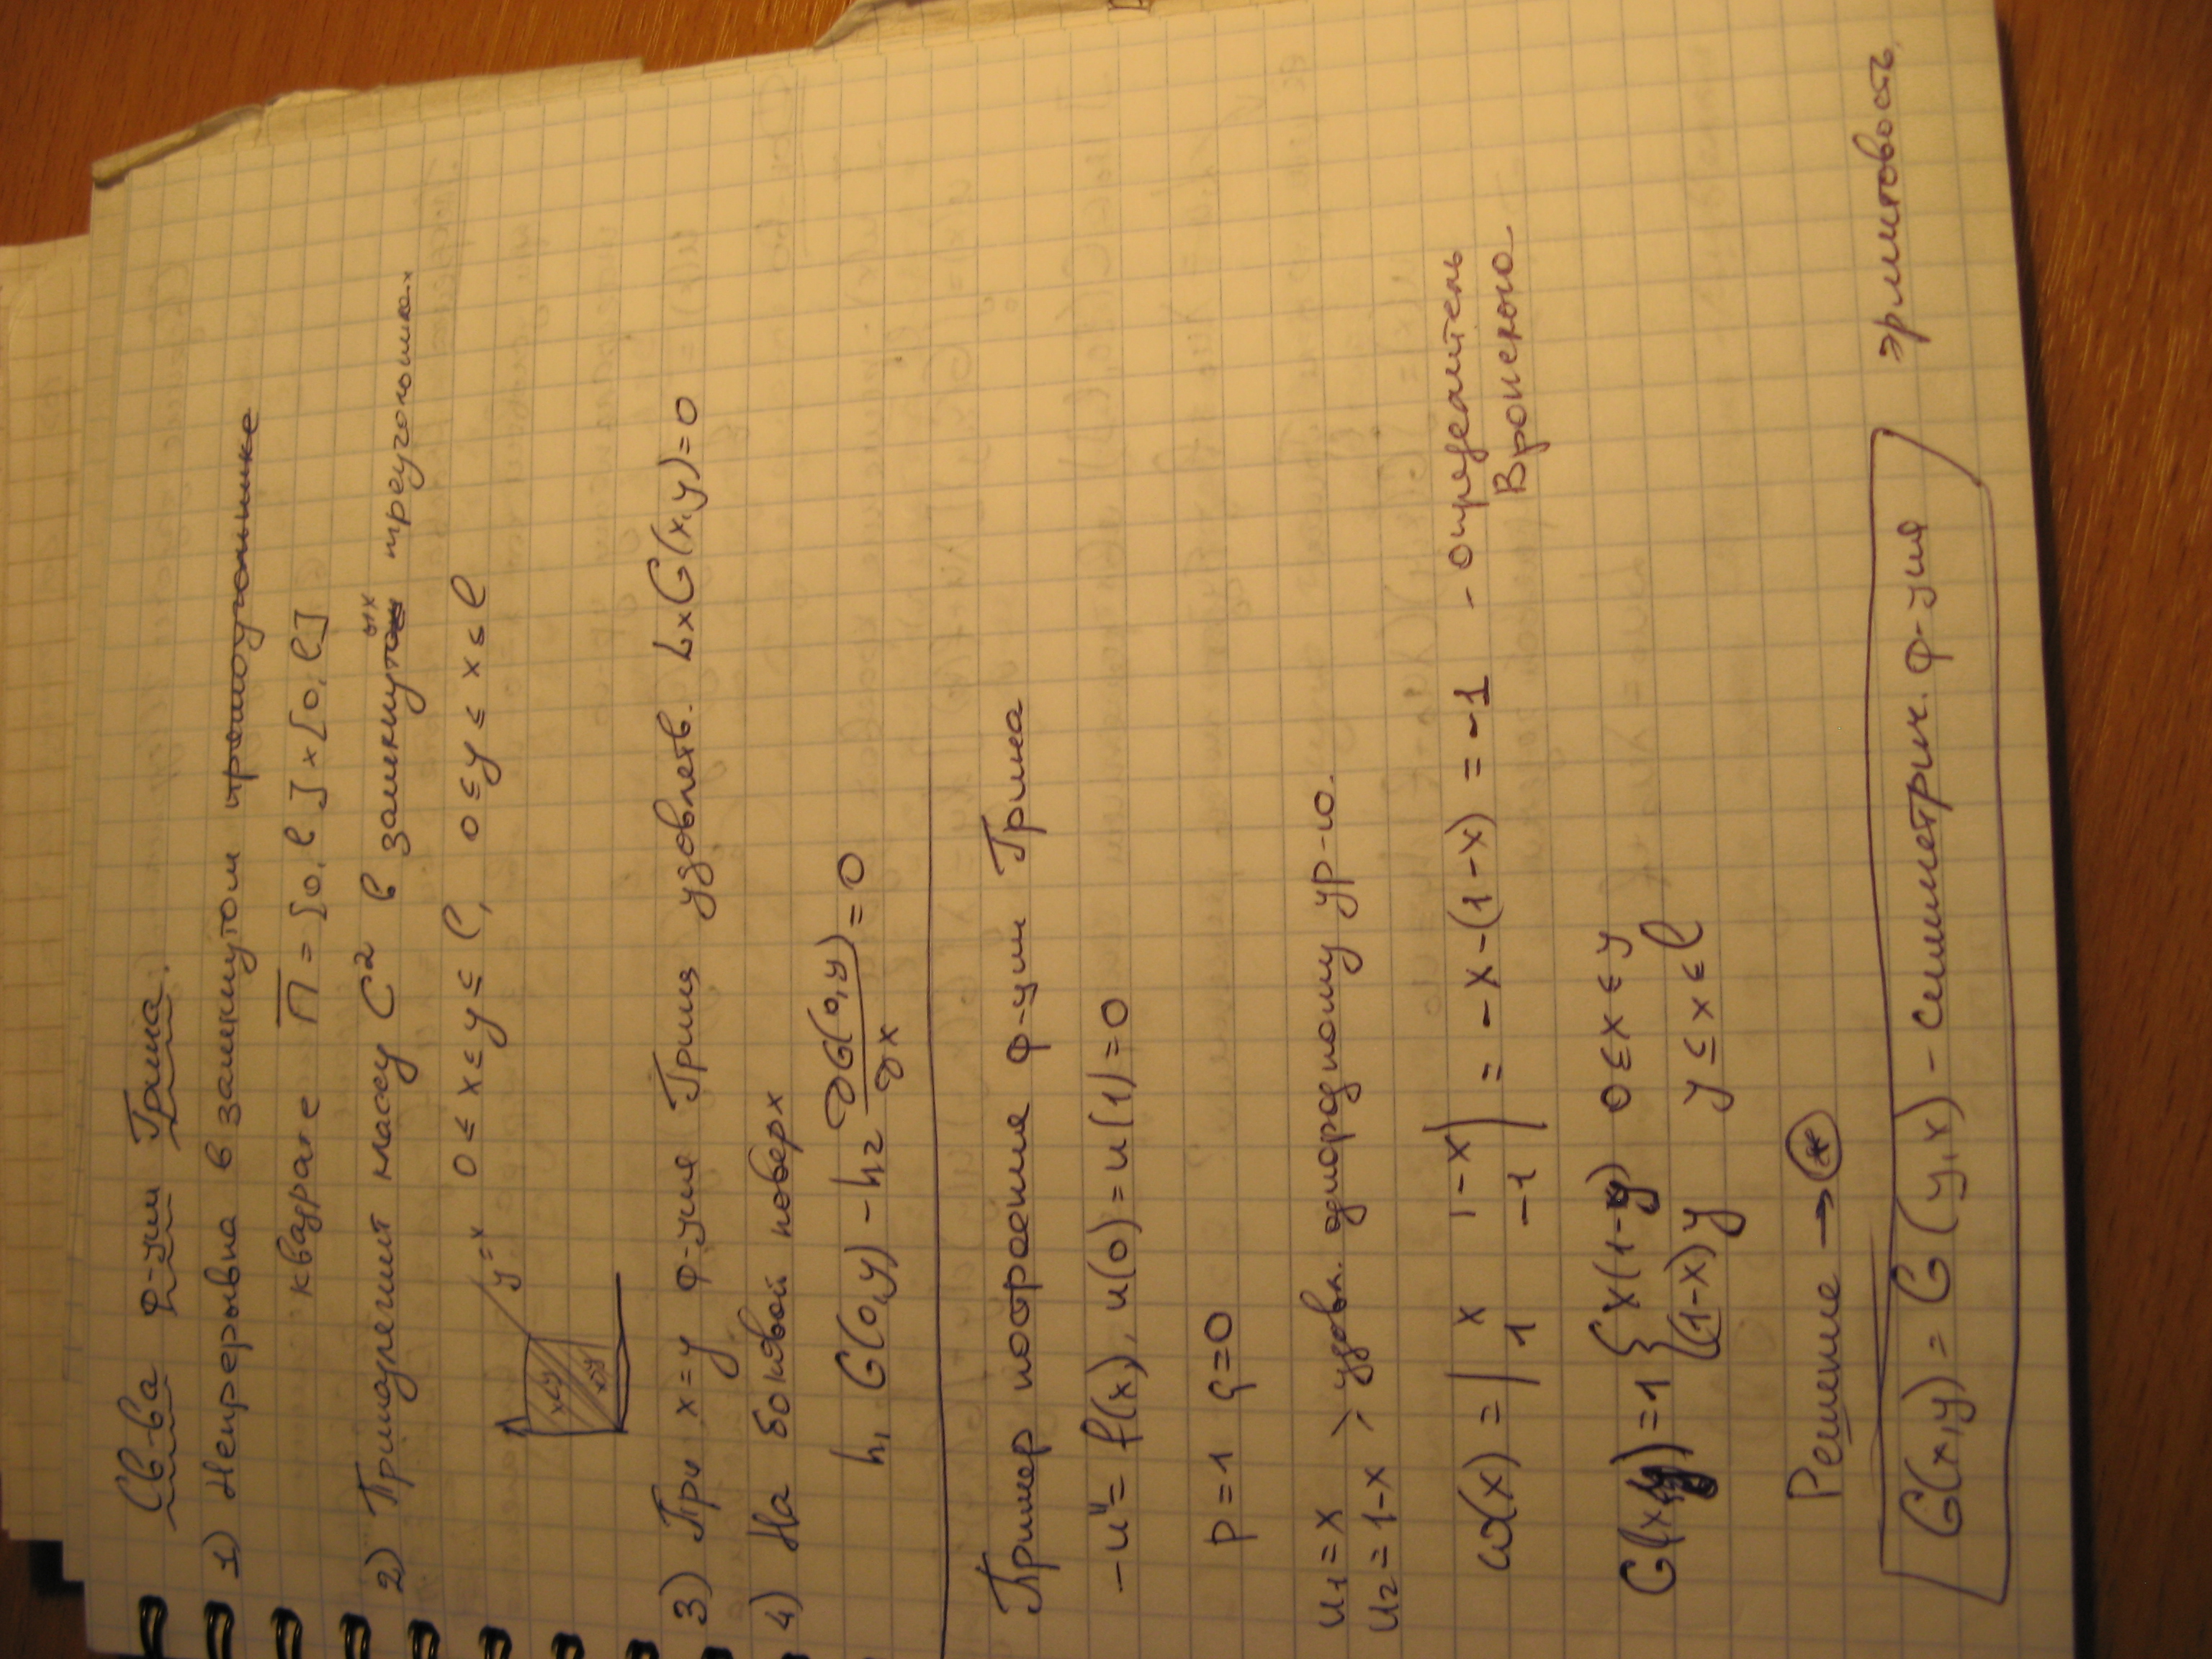 Св-ва ф-ции Грина.
1) Непрерывна в замкнутом прямоугольнике
квадрате П̅ = [0, l] x [0, l]
2) Принадлежит классу C² в замкнутых треугольниках
0 ≤ x ≤ y ≤ l, 0 ≤ y ≤ x ≤ l
y=x
x<y
x>y
3) При x=y ф-ция Грина удовлетв. LxG(x,y)=0
4) На боковой поверх
h₁ G(0,y) - h₂ ∂G(0,y)/∂x = 0
Пример построения ф-ции Грина
-u'' = f(x), u(0) = u(1) = 0
p=1 q=0
u₁ = x
u₂ = 1-x > удовл. однородному ур-ю.
ω(x) = | x 1-x | = -x-(1-x) = -1 - определитель
1 -1 Вронского
G(x,y) = 1 { x(1-y) 0 ≤ x ≤ y
(1-x)y y ≤ x ≤ l
Решение → (*)
G(x,y) = G(y,x) - симметрич. ф-ция эрмитовость